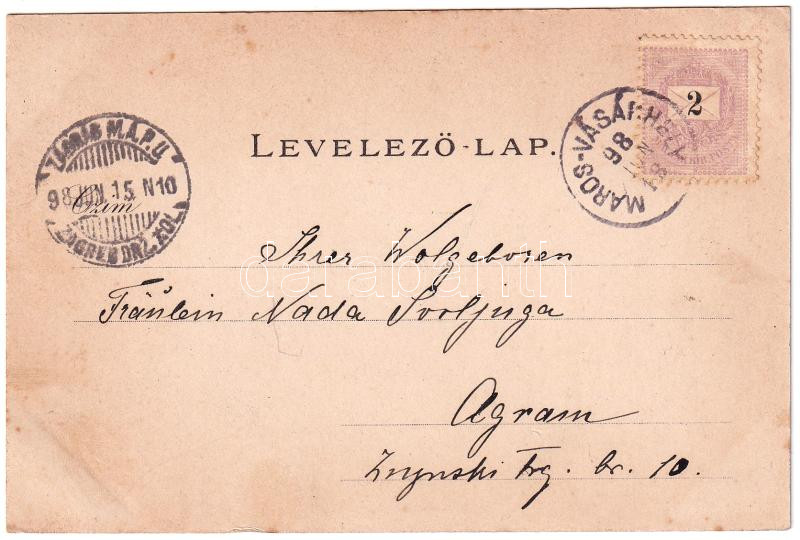 LEVELEZŐ-LAP.
2
MAROS-VÁSÁRHELY
98
JUN
ZÁGRÁB M.Á.P.U
98 JUN. 15. N10
ZAGREB DRŽ. KOL.
Czím
Ihrer Wolgeboren
Fräulein Nada Svoljuga
Agram
Zrynski trg. br. 10.
darabanth